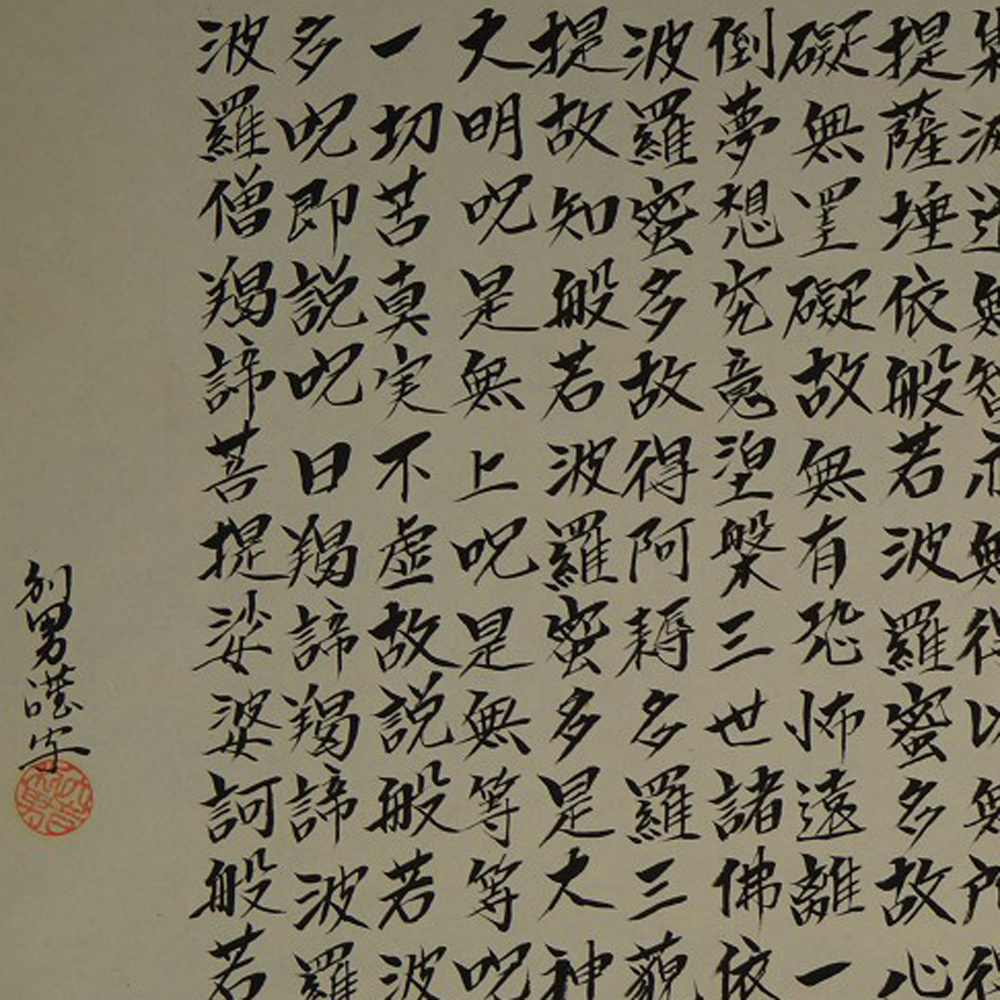 集滅道無智亦無得以無所得
提薩埵依般若波羅蜜多故心
礙無罣礙故無有恐怖遠離一
倒夢想究竟涅槃三世諸佛依
波羅蜜多故得阿耨多羅三藐
提故知般若波羅蜜多是大神
大明呪是無上呪是無等等呪
一切苦真実不虚故説般若波
多呪即説呪曰羯諦羯諦波羅
波羅僧羯諦菩提娑婆訶般若